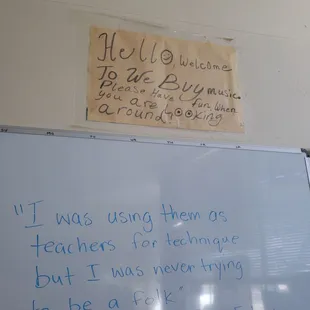 Hello Welcome
To We Buy music.
Please Have fun When
you are looking
around
"I was using them as
teachers for technique
but I was never trying
to be a folk"